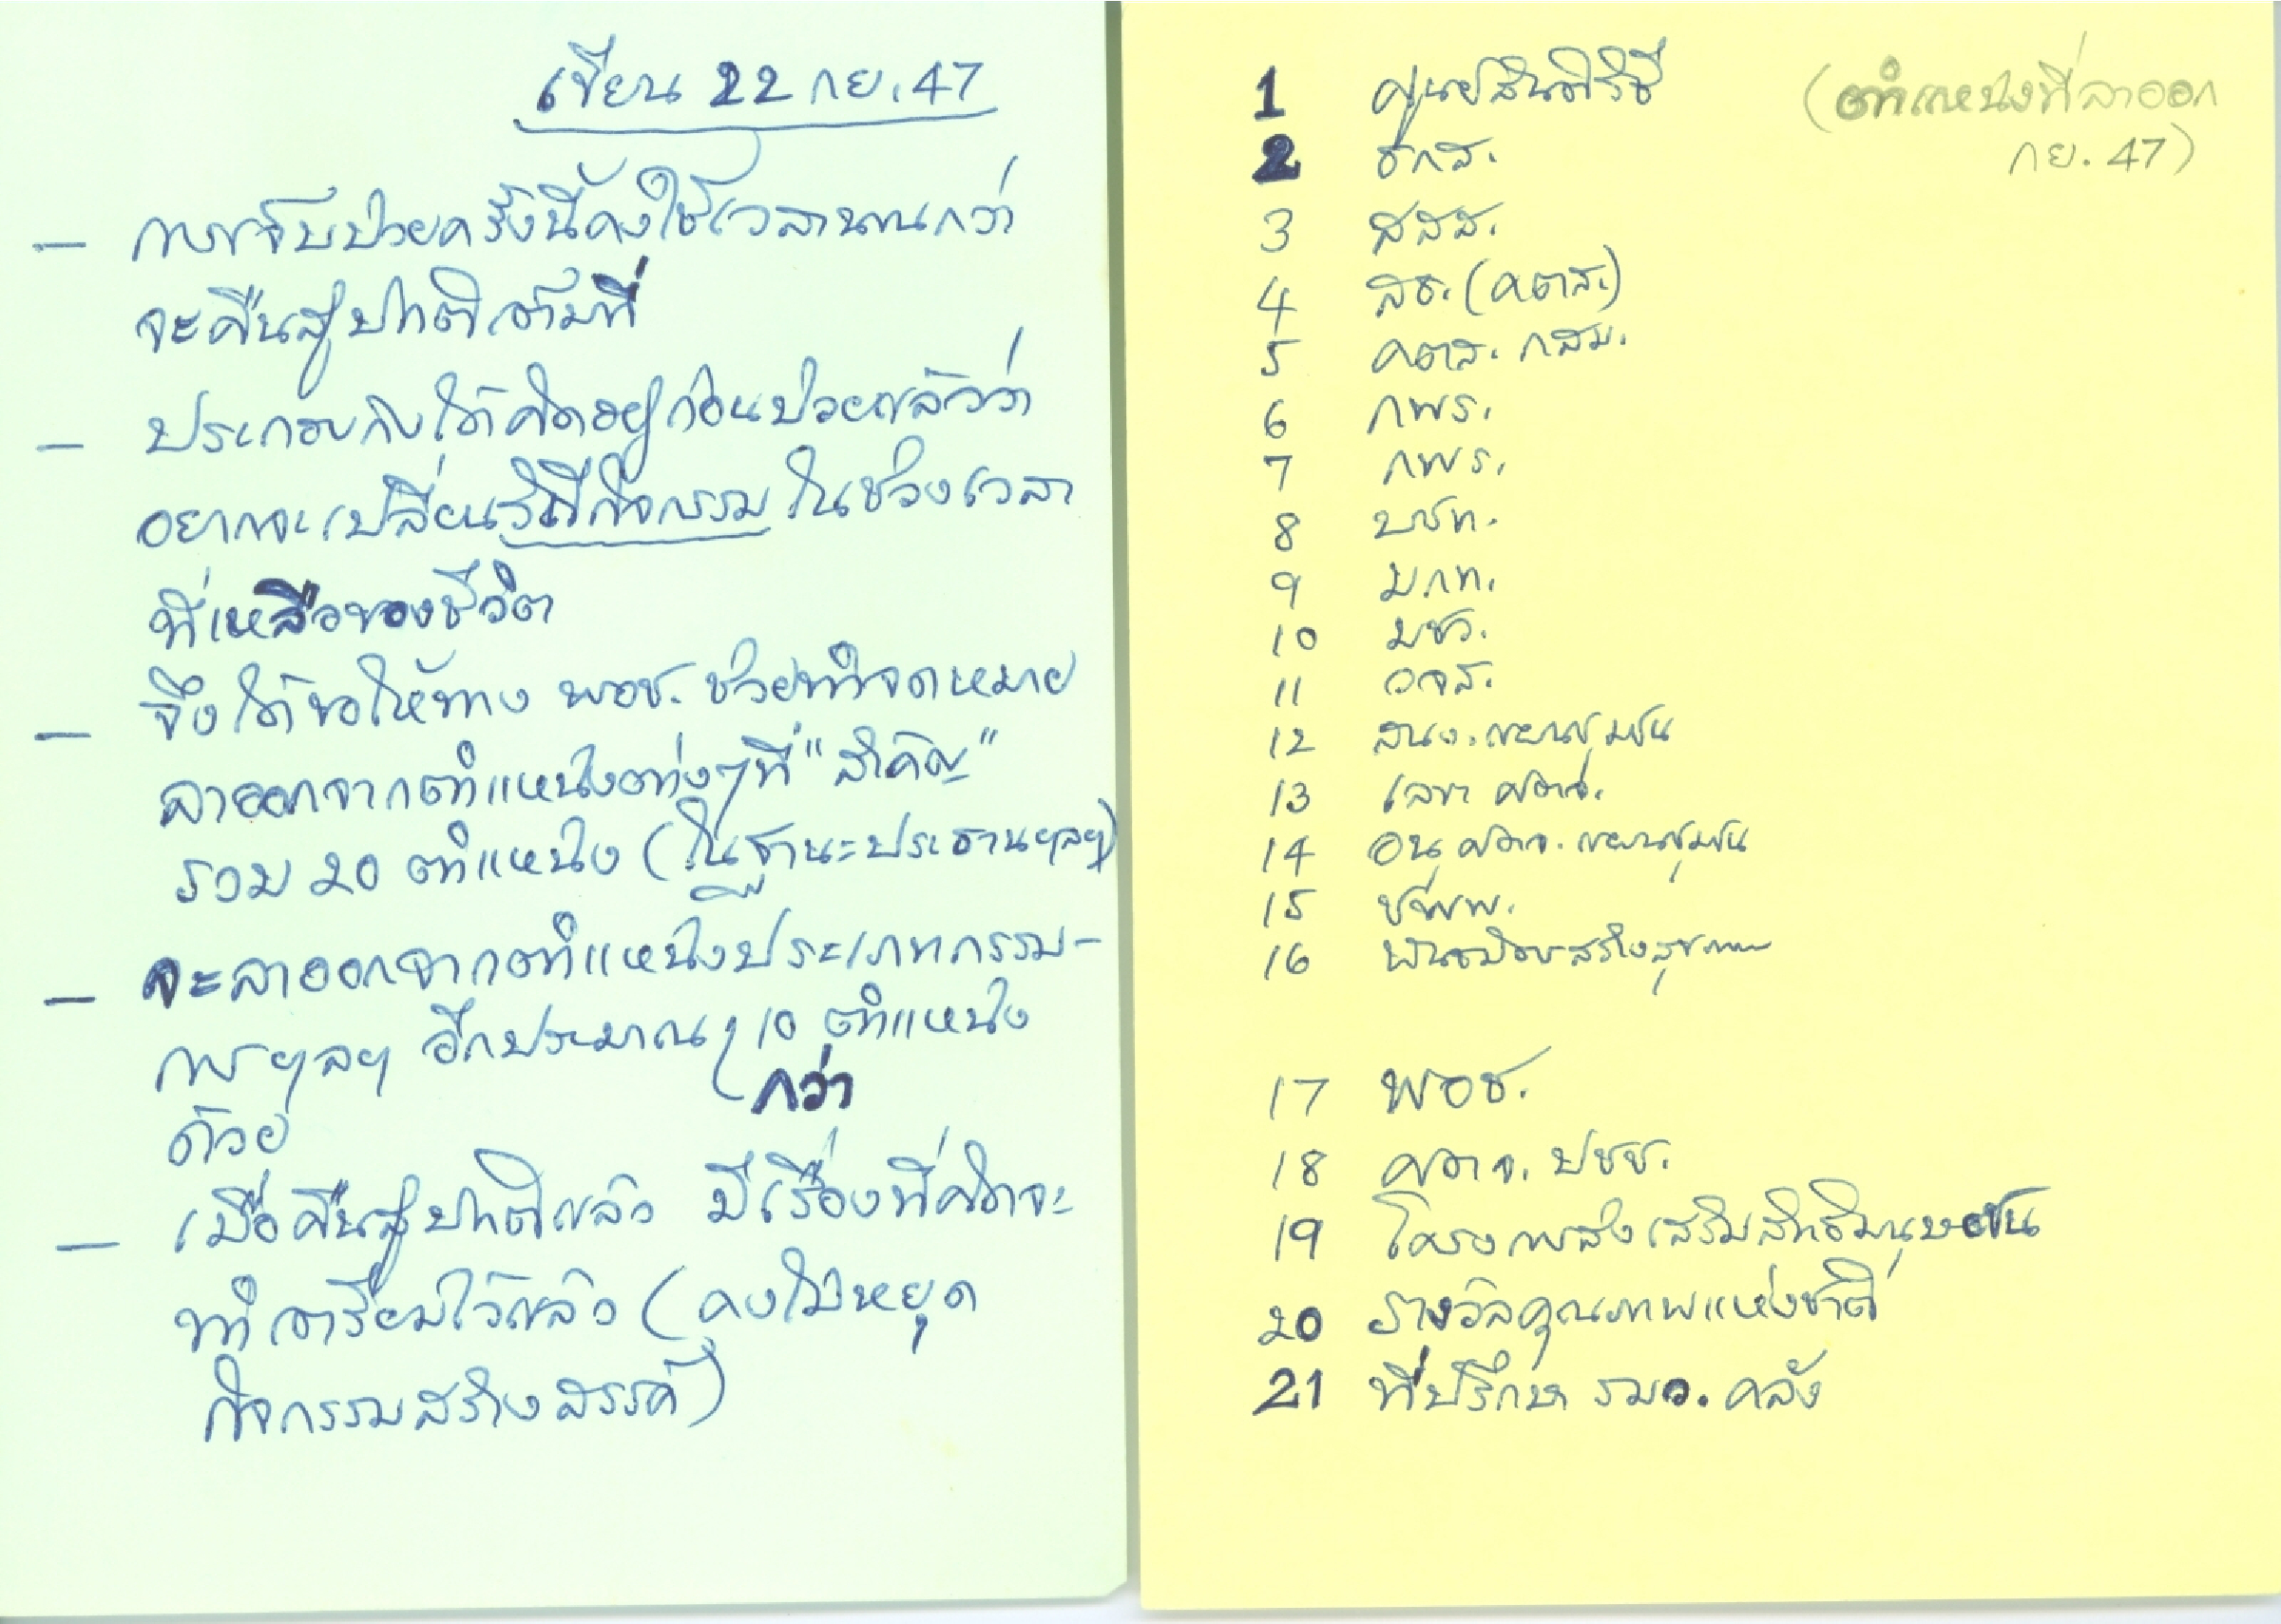 เขียน 22 กย. 47
— การเจ็บป่วยครั้งนี้คงใช้เวลานานกว่า
จะคืนสู่ปกติเต็มที่
— ประกอบกับได้คิดอยู่ก่อนป่วยแล้วว่า
อยากจะเปลี่ยนวิถีกิจกรรมในช่วงเวลา
ที่เหลือของชีวิต
— จึงได้ขอให้ทาง พอช. ช่วยทำจดหมาย
ลาออกจากตำแหน่งต่างๆที่ "สำคัญ"
รวม 20 ตำแหน่ง (ในฐานะประธานฯลฯ)
— จะลาออกจากตำแหน่งประเภทกรรม-
การ ฯลฯ อีกประมาณ 10 ตำแหน่ง
กว่า
ด้วย
— เมื่อคืนสู่ปกติแล้ว มีเรื่องที่คิดจะ
ทำเตรียมไว้แล้ว (คงไม่หยุด
กิจกรรมสร้างสรรค์)
1 ศูนย์สันติวิธี (ตำแหน่งที่ลาออก
2 ธกส. กย. 47)
3 สสส.
4 สธ. (คตส.)
5 คตส. กสม.
6 กพร.
7 กพร.
8 บชท.
9 มกท.
10 มชว.
11 วจส.
12 สนง. แผนชุมชน
13 เลขา ศตจ.
14 อนุ ศตจ. แผนชุมชน
15
16 สร้างสุขภาพ
17 พอช.
18 ศตจ. ปชช.
19 โครงการส่งเสริมสิทธิมนุษยชน
20 รางวัลคุณภาพแห่งชาติ
21 ที่ปรึกษา รมว. คลัง